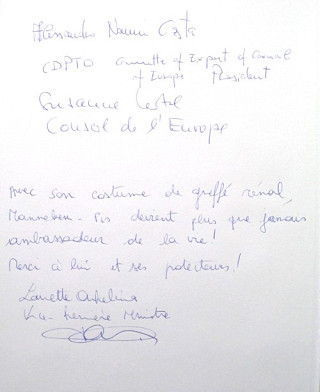 Alessandro Nanni Costa
CDPTO Committe of Expert of Council
of Europe President
Susanne
Consol de l'Europe
Avec son costume de greffé rénal,
Manneken-Pis devient plus que jamais
ambassadeur de la vie!
Merci à lui et ses protecteurs!
Laurette Onkelinx
Vice-Première Ministre